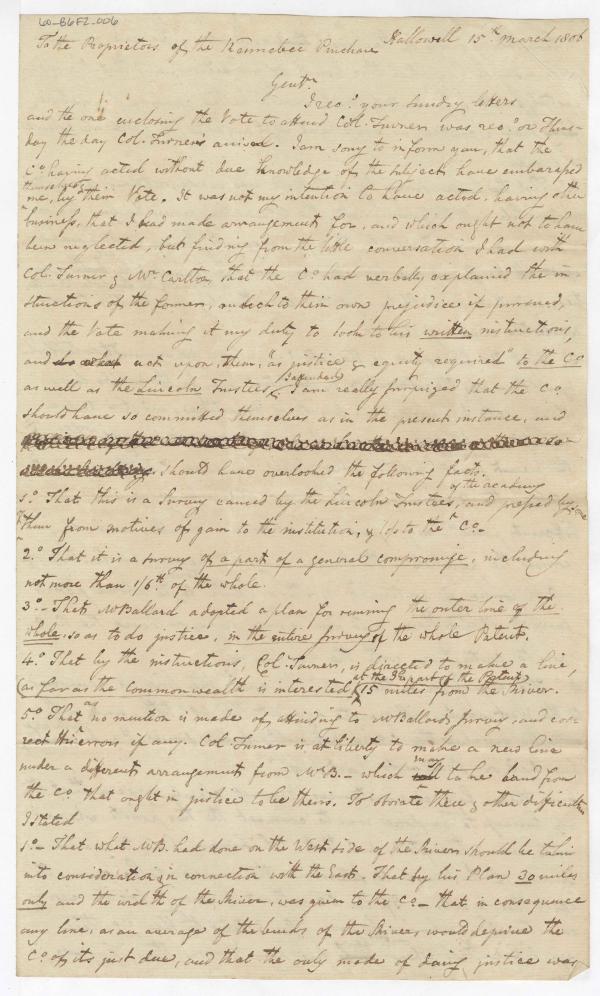 60-B6F2.006
To the Proprietors of the Kennebec Purchase Hallowell 15th March 1806
Gentn
I recd. your Sunday letters
and the one enclosing the Vote to attend Col. Turner was recd. on Thurs-
day the day Col. Turner arrived. I am sorry to inform you, that the
Co. having acted without due knowledge of the subject have embarassed
themselves &
me, by their Vote. It was not my intention to have acted, having other
business, that I had made arrangement for, and which ought not to have
been neglected, but finding from the little conversation I had with
Col. Turner & Mr. Carlton, that the Co. had verbally explained the in-
structions of the former, much to their own prejudice if pursued,
and the Vote making it my duty to look to his written instructions,
and act upon them, "as justice & equity required" to the Co.
as well as the Lincoln Trustees, I am really surprized that the Co.
should have so committed themselves as in the present instance, and
should have overlooked the following facts.
of the academy
1o. That this is a Survey caused by the Lincoln Trustees, and pressed by
them from motives of gain to the institution, & loss to the Co.
2.o That it is a survey of a part of a general compromise, including
not more than 1/6th. of the whole.
3o. That Mr Ballard adopted a plan for running the outer line of the
whole, so as to do justice, in the entire survey of the whole Patent.
4.o That by the instructions, Col. Turner, is directed to make a line,
at the Patent
(as far as the Commonwealth is interested) 15 miles from the River.
5.o That as no mention is made of attending to Mr Ballard's survey, and cor-
rect his errors if any. Col. Turner is at liberty to make a new line
under a different arrangement from Mr B. - which may take land from
the Co. that ought in justice to be theirs. To obviate these & other difficulties
I stated
1o. That what Mr B. had done on the West side of the River should be taken
into consideration & in connection with the East. That by his Plan 30 miles
only and the width of the River, was given to the Co. - that in consequence
any line, as an average of the bends of the River, would deprive the
Co. of its just due, and that the only mode of doing justice was